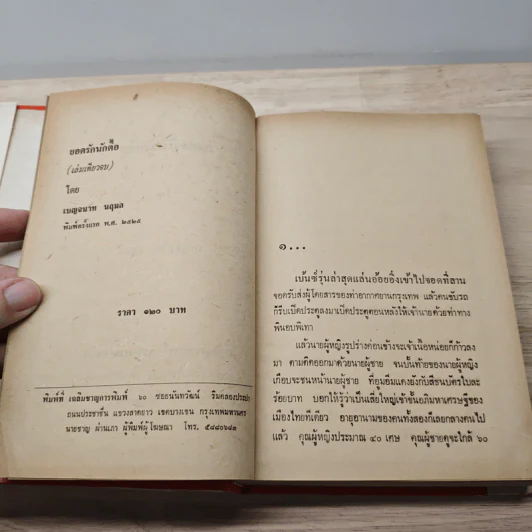 ยอดรักนักตื๊อ
(เล่มเดียวจบ)
โดย
เบญจมาท นฤมล
พิมพ์ครั้งแรก พ.ศ. ๒๕๒๕
ราคา ๑๒๐ บาท
พิมพ์ที่ เฉลิมชาญการพิมพ์ ๖๐ ซอยนันทวัฒน์ ริมคลองประปา
ถนนประชาชื่น แขวงลาดยาว เขตบางเขน กรุงเทพมหานคร
นายชาญ ผ่านเภา ผู้พิมพ์ผู้โฆษณา โทร, ๕๘๘๐๖๘๗
๑...
เบ้นซ์รุ่นล่าสุดแล่นอ้อยอิ่งเข้าไปจอดที่ลาน
จอดรับส่งผู้โดยสารของท่าอากาศยานกรุงเทพ แล้วคนขับรถ
ก็รีบเปิดประตูลงมาเปิดประตูตอนหลังให้เจ้านายด้วยท่าทาง
พินอบพิเทา
แล้วนายผู้หญิงรูปร่างค่อนข้างจะเจ้าเนื้อหน่อยก็ก้าวลง
มา ตามติดออกมาด้วยนายผู้ชาย จนบั้นท้ายของนายผู้หญิง
เกือบจะชนหน้านายผู้ชาย ที่อุมอิ่มแดงยังกับสีธนบัตรใบละ
ร้อยบาท บอกให้รู้ว่าเป็นเสี่ยใหญ่เข้าขั้นอภิมหาเศรษฐีของ
เมืองไทยทีเดียว อายุอานามของคนทั้งสองก็เลยกลางคนไป
แล้ว คุณผู้หญิงประมาณ ๔๐ เศษ คุณผู้ชายดูจะใกล้ ๖๐